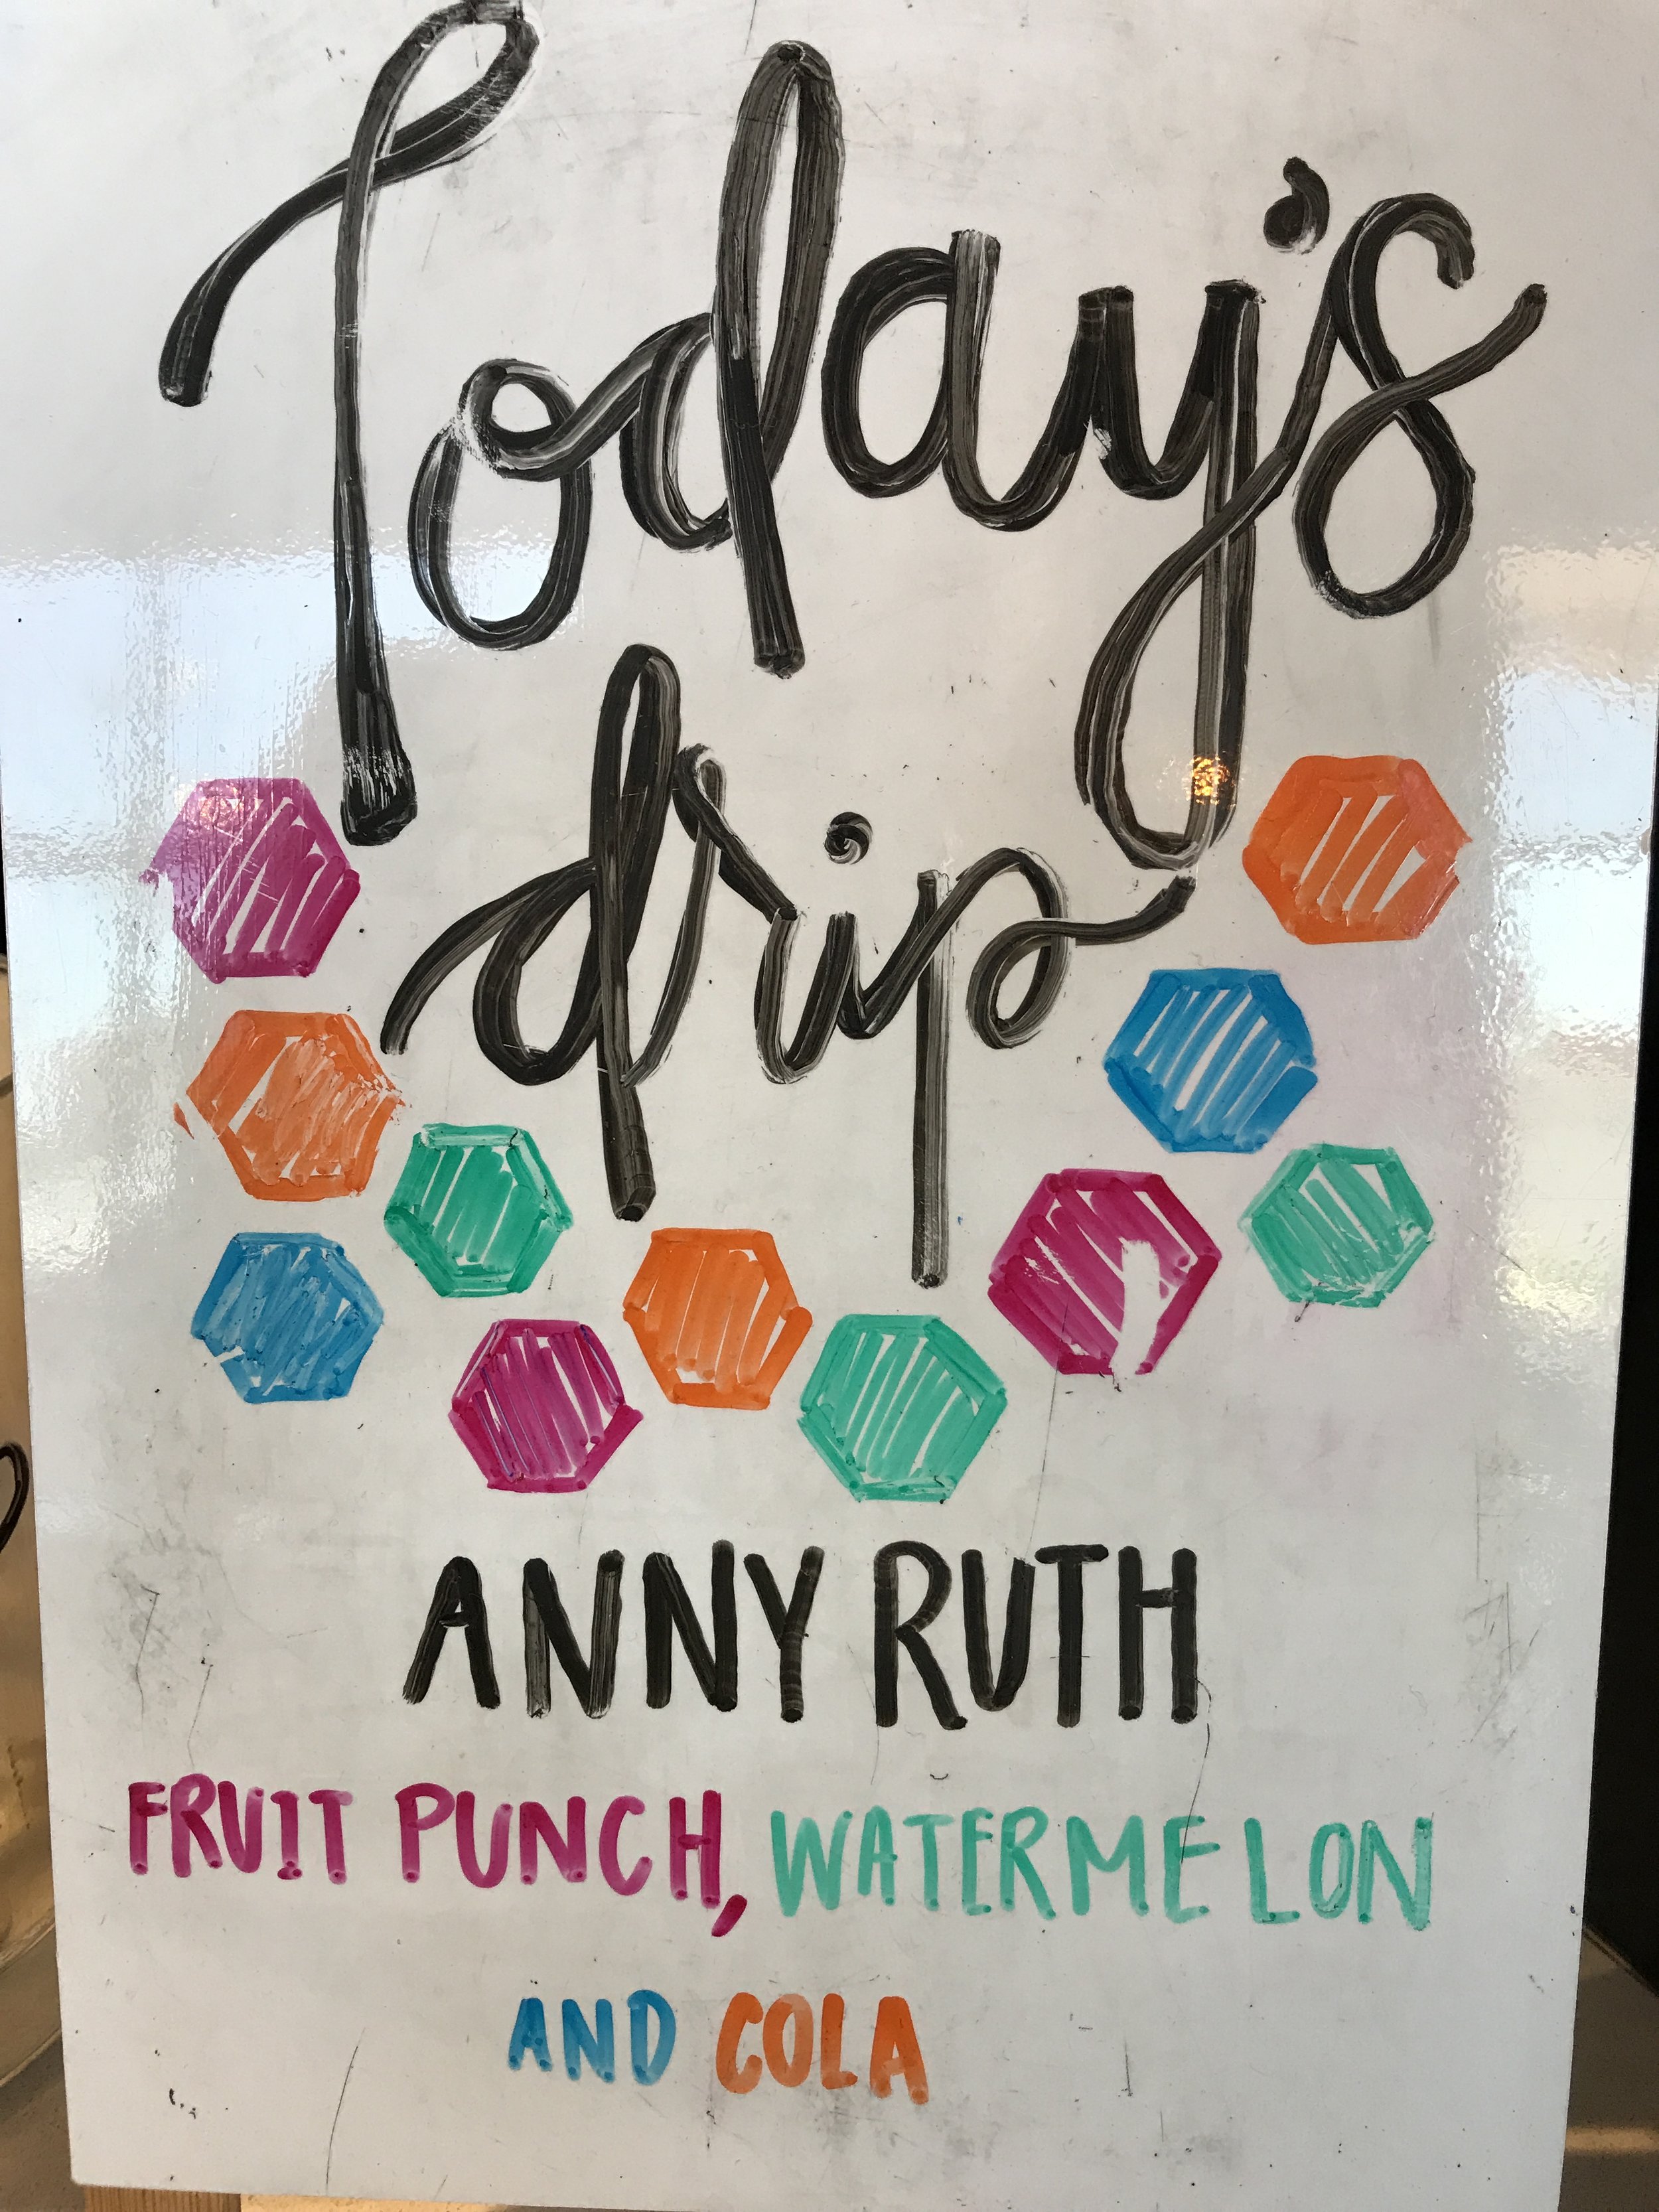 Today's
drip
ANNY RUTH
FRUIT PUNCH, WATERMELON
AND COLA